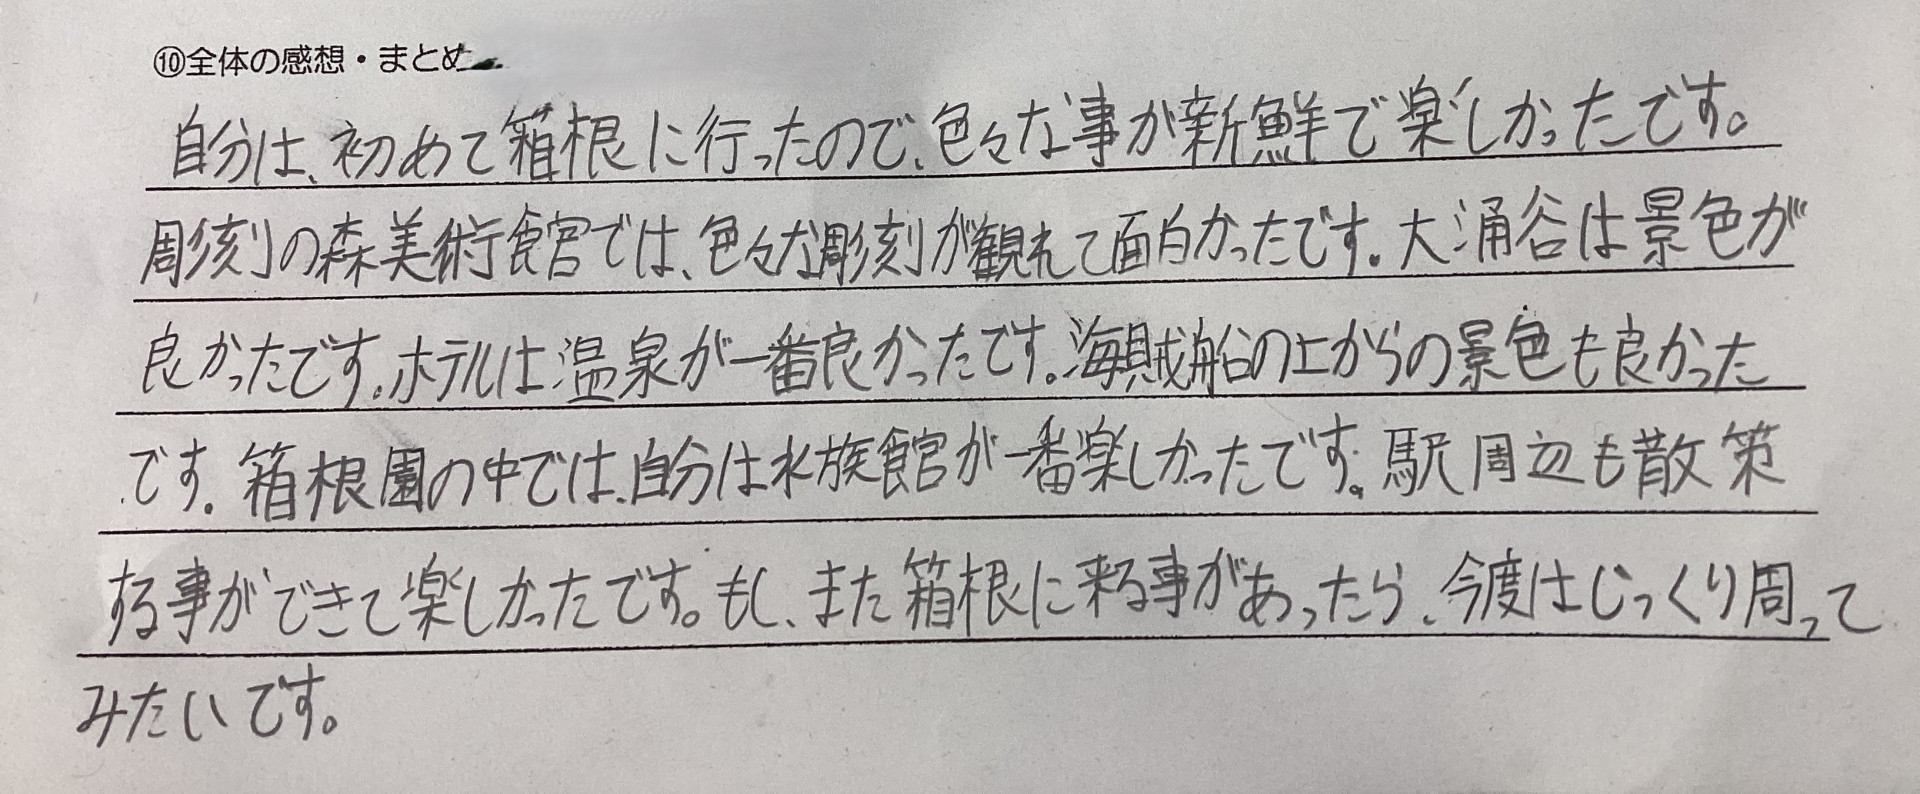 ⑩全体の感想・まとめ
自分は、初めて箱根に行ったので、色々な事が新鮮で楽しかったです。
彫刻の森美術館では、色々な彫刻が観れて面白かったです。大涌谷は景色が
良かったです。ホテルは温泉が一番良かったです。海賊船の上からの景色も良かった
です。箱根園の中では、自分は水族館が一番楽しかったです。駅周辺も散策
する事ができて楽しかったです。もし、また箱根に来る事があったら、今度はじっくり周って
みたいです。